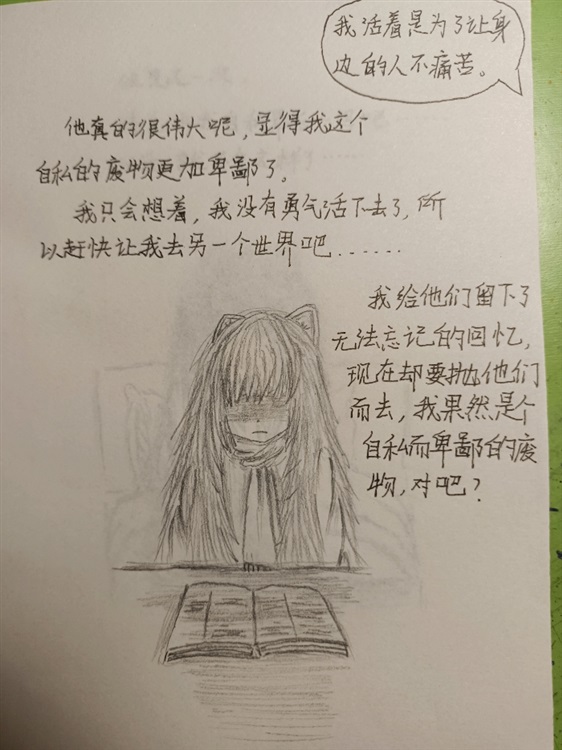 我活着是为了让身
边的人不痛苦。
他真的很伟大呢，显得我这个
自私的废物更加卑鄙了。
我只会想着，我没有勇气活下去了，所
以赶快让我去另一个世界吧……
我给他们留下了
无法忘记的回忆，
现在却要抛他们
而去，我果然是个
自私而卑鄙的废
物，对吧？